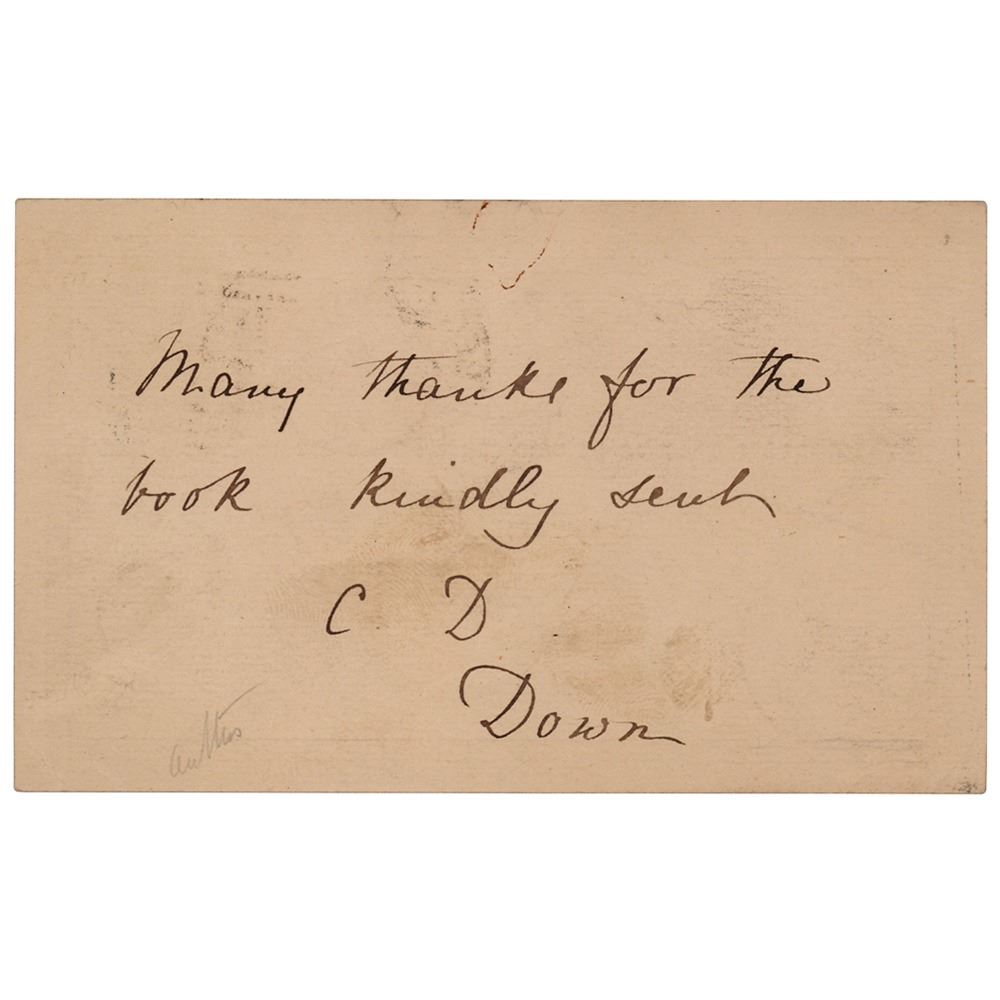 Many thanks for the
book kindly sent
C D
Down